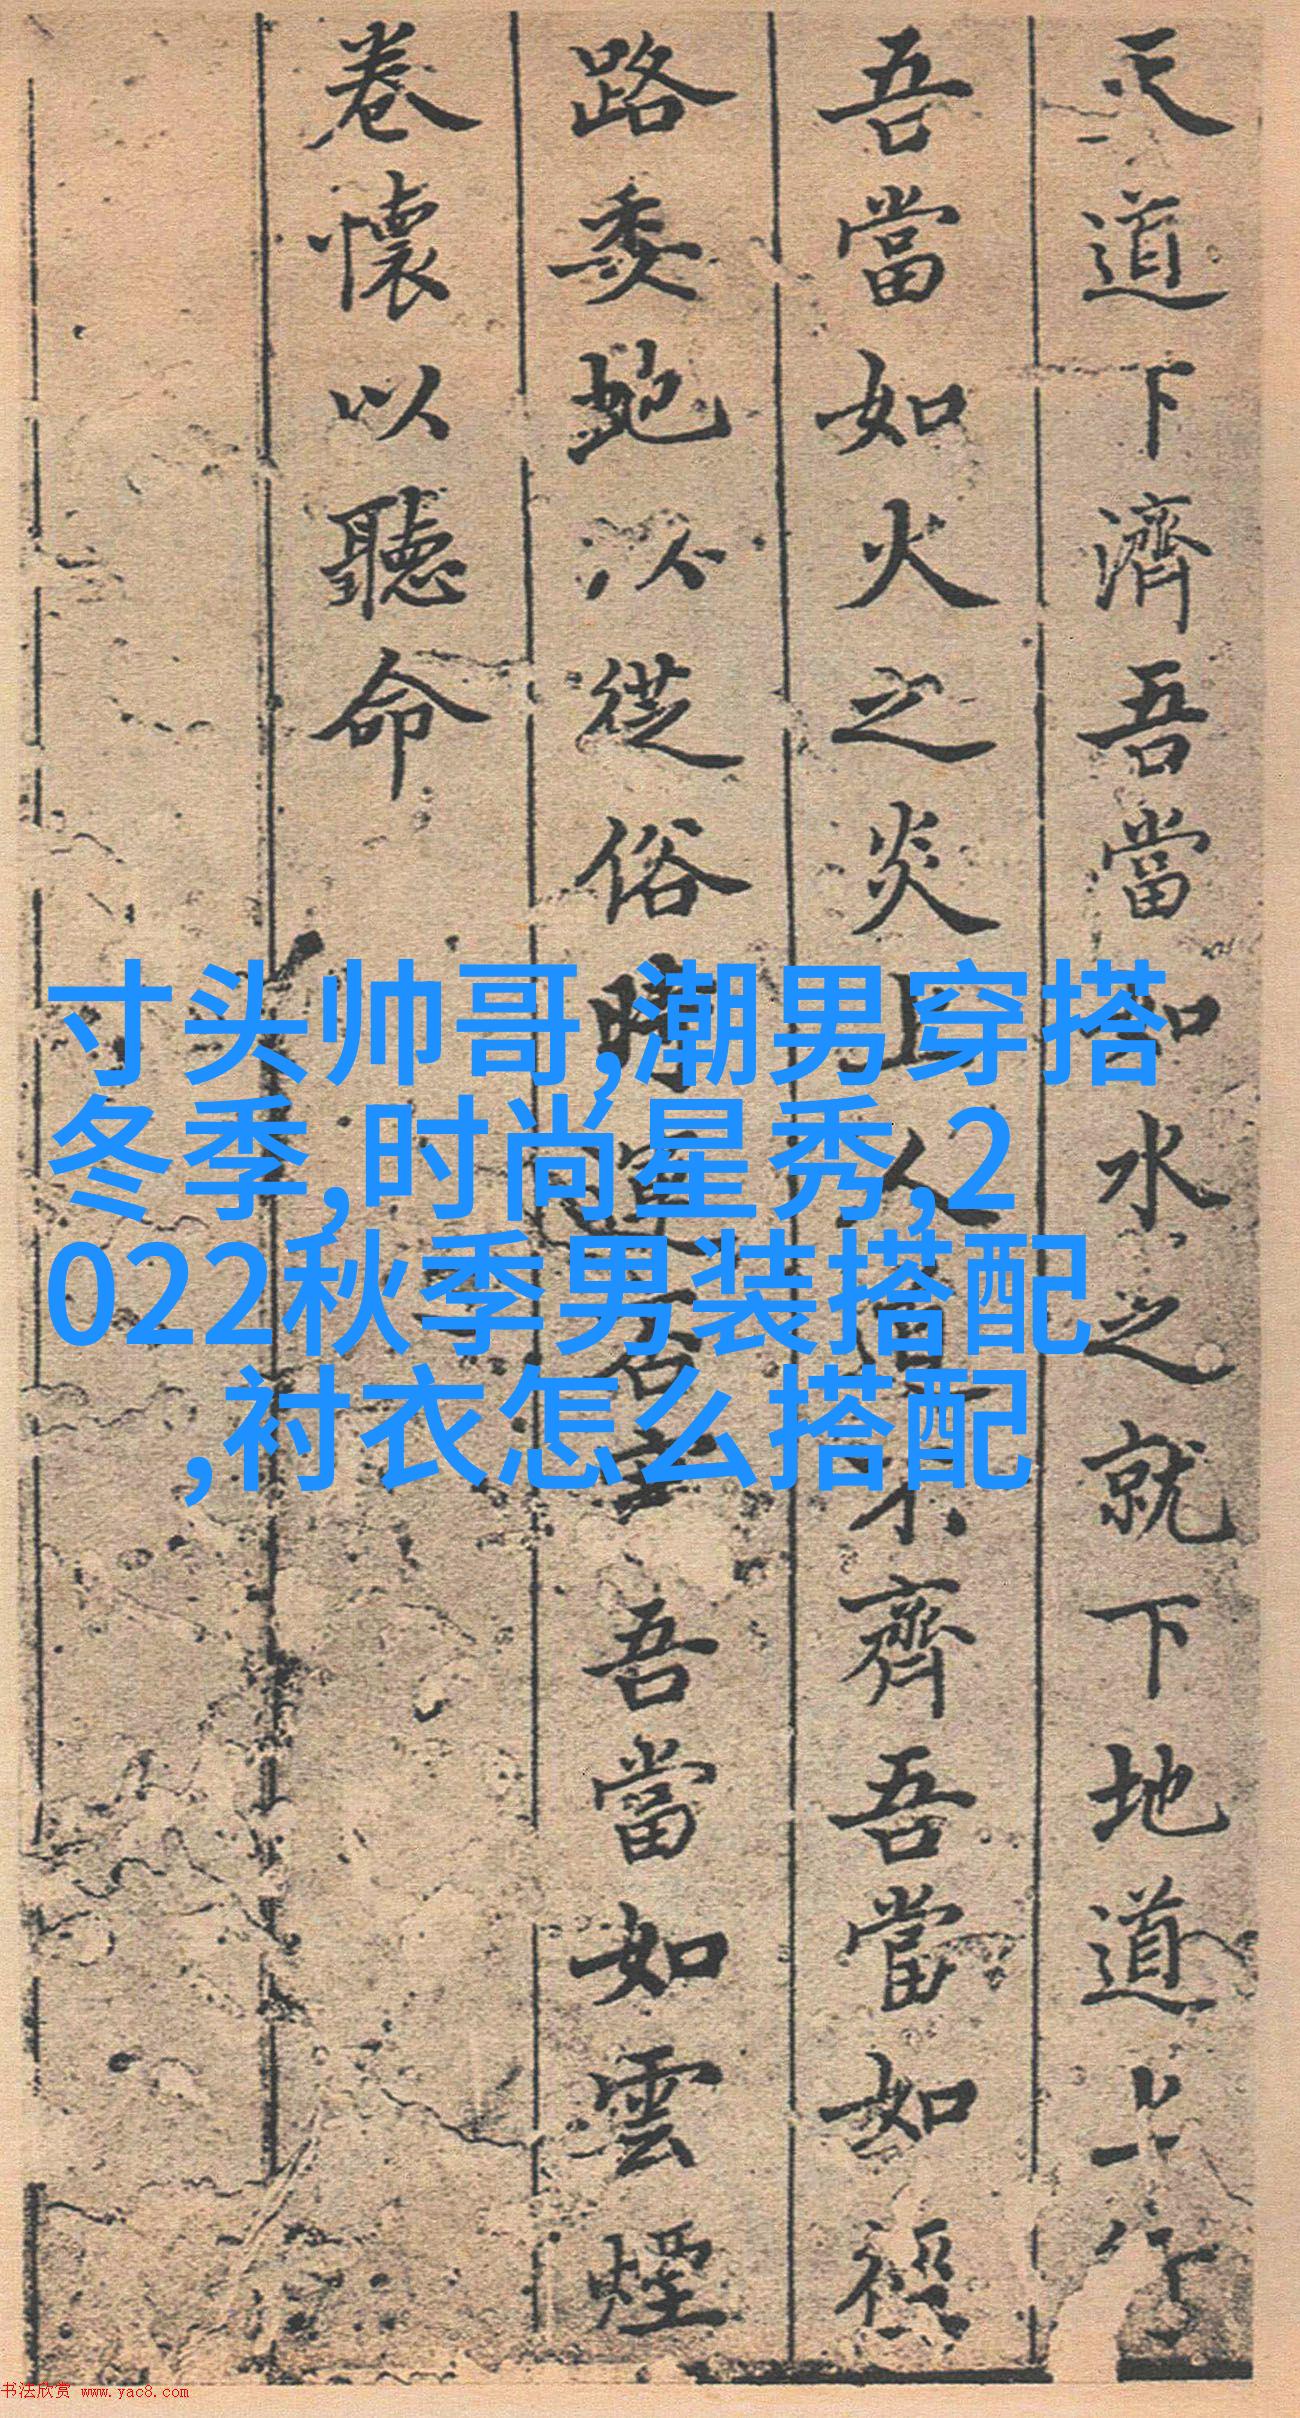 天道下濟吾當如水之就下地道上行
吾當如火之炎上人道不齊吾當如
路委蛇以從俗時 吾當如雲煙
卷懷以聽命
寸头帅哥,潮男穿搭
冬季,时尚星秀,2
022秋季男装搭配
,衬衣怎么搭配
书法欣赏 www.yac8.com